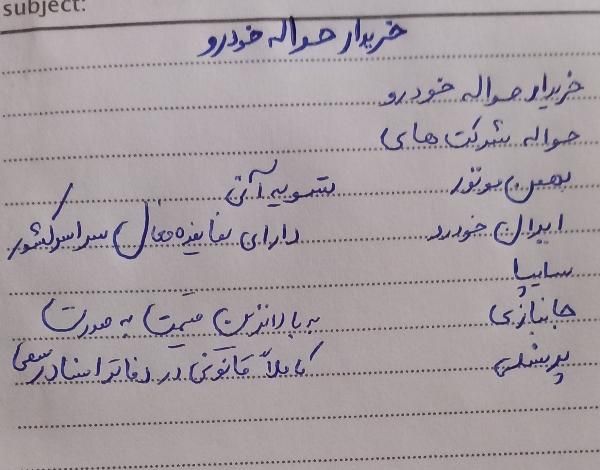 subject:
خریدار حواله خودرو
خریدار حواله خودرو
حواله شرکت های
بهمن موتور تسویه آنی
ایران خودرو دارای نماینده فعال سراسر کشور
سایپا
جانبازی به بالاترین قیمت به صورت
پرسنلی کاملاً قانونی در دفاتر اسناد رسمی